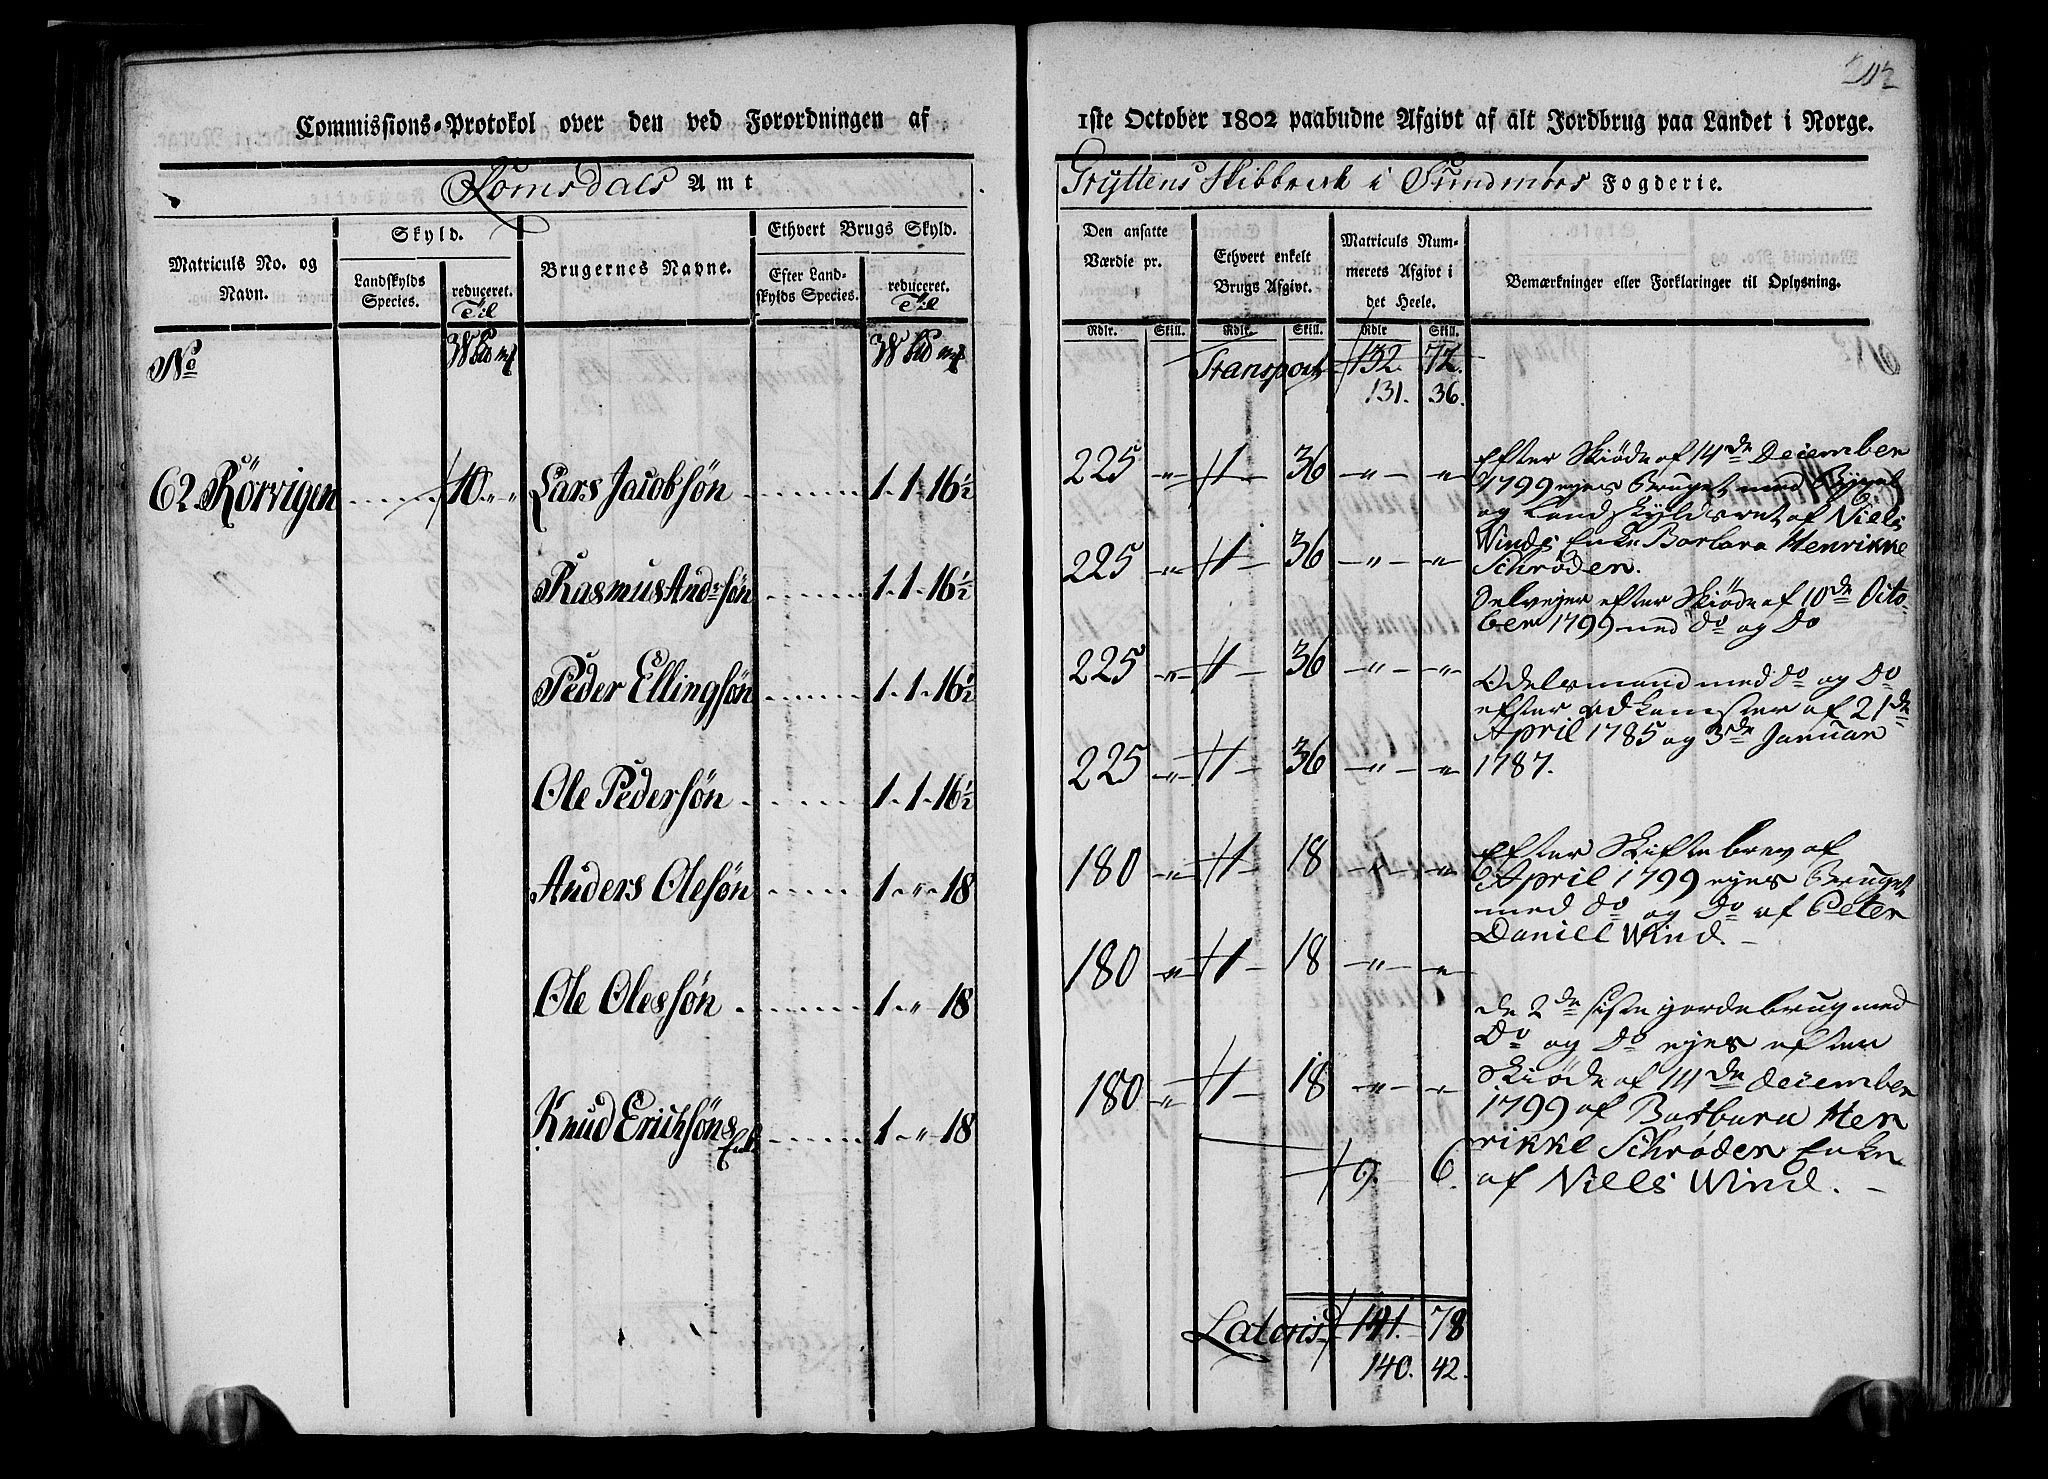 Commissions-Protokol over den ved Forordningen af
1ste October 1802 paabudne Afgivt af alt Jordbrug paa Landet i Norge.
Romsdals Amt
Gryttens Skibbrede i Sundmørs Fogderie.
Matriculs No. og Navn.
Skyld.
Landskylds Species.
reduceret. Til
Brugernes Navne.
Ethvert Brugs Skyld.
Efter Landskylds Species.
reduceret. Til
Den ansatte Værdie pr.
Ethvert enkelt Brugs Afgivt.
Matriculs Nummerets Afgivt i det Heele.
Bemærkninger eller Forklaringer til Oplysning.
Rdlr. Skill. Rdlr. Skill. Rdlr Skill.
No
Transport 132. 72.
131. 36.
62. Rörvigen 10 " "
Lars Jacobsøn 1. 1. 16½ 225 " 1 36 " "
Rasmus Andrsøn 1. 1. 16½ 225 " 1 36 " "
Peder Ellingsøn 1. 1. 16½ 225 " 1 36 " "
Ole Pedersøn 1. 1. 16½ 225 " 1 36 " "
Anders Olesøn 1. " 18 180 " 1 18 " "
Ole Olessøn 1. " 18 180 " 1 18 " "
Knud Erichsøns Enk. 1. " 18 180 " 1 18 " "
9. 6.
Lateris 141. 78
140. 42.
Efter Skiøde af 14de December
1799 ejes Bruget med Bygsel
og Landskyldsret af Niels
Winds Enke Barbara Henrikke
Schrøder.
Selvejer efter Skiøde af 10de Octo-
ber 1799 med do og do
Odelsmand med do og do
efter adkomster af 21de
April 1785 og 3de Januar
1787.
Efter Skiftebrev af
April 1799 ejes Bruget
med do og do af Peter
Daniel Wind.
de 2de siste jordebrug med
do og do ejes efter
Skiøde af 14de December
1799 af Barbara Hen
rikke Schrøder Enke
af Niels Wind.